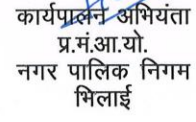 कार्यपालन अभियंता
प्र.मं.आ.यो.
नगर पालिक निगम
भिलाई